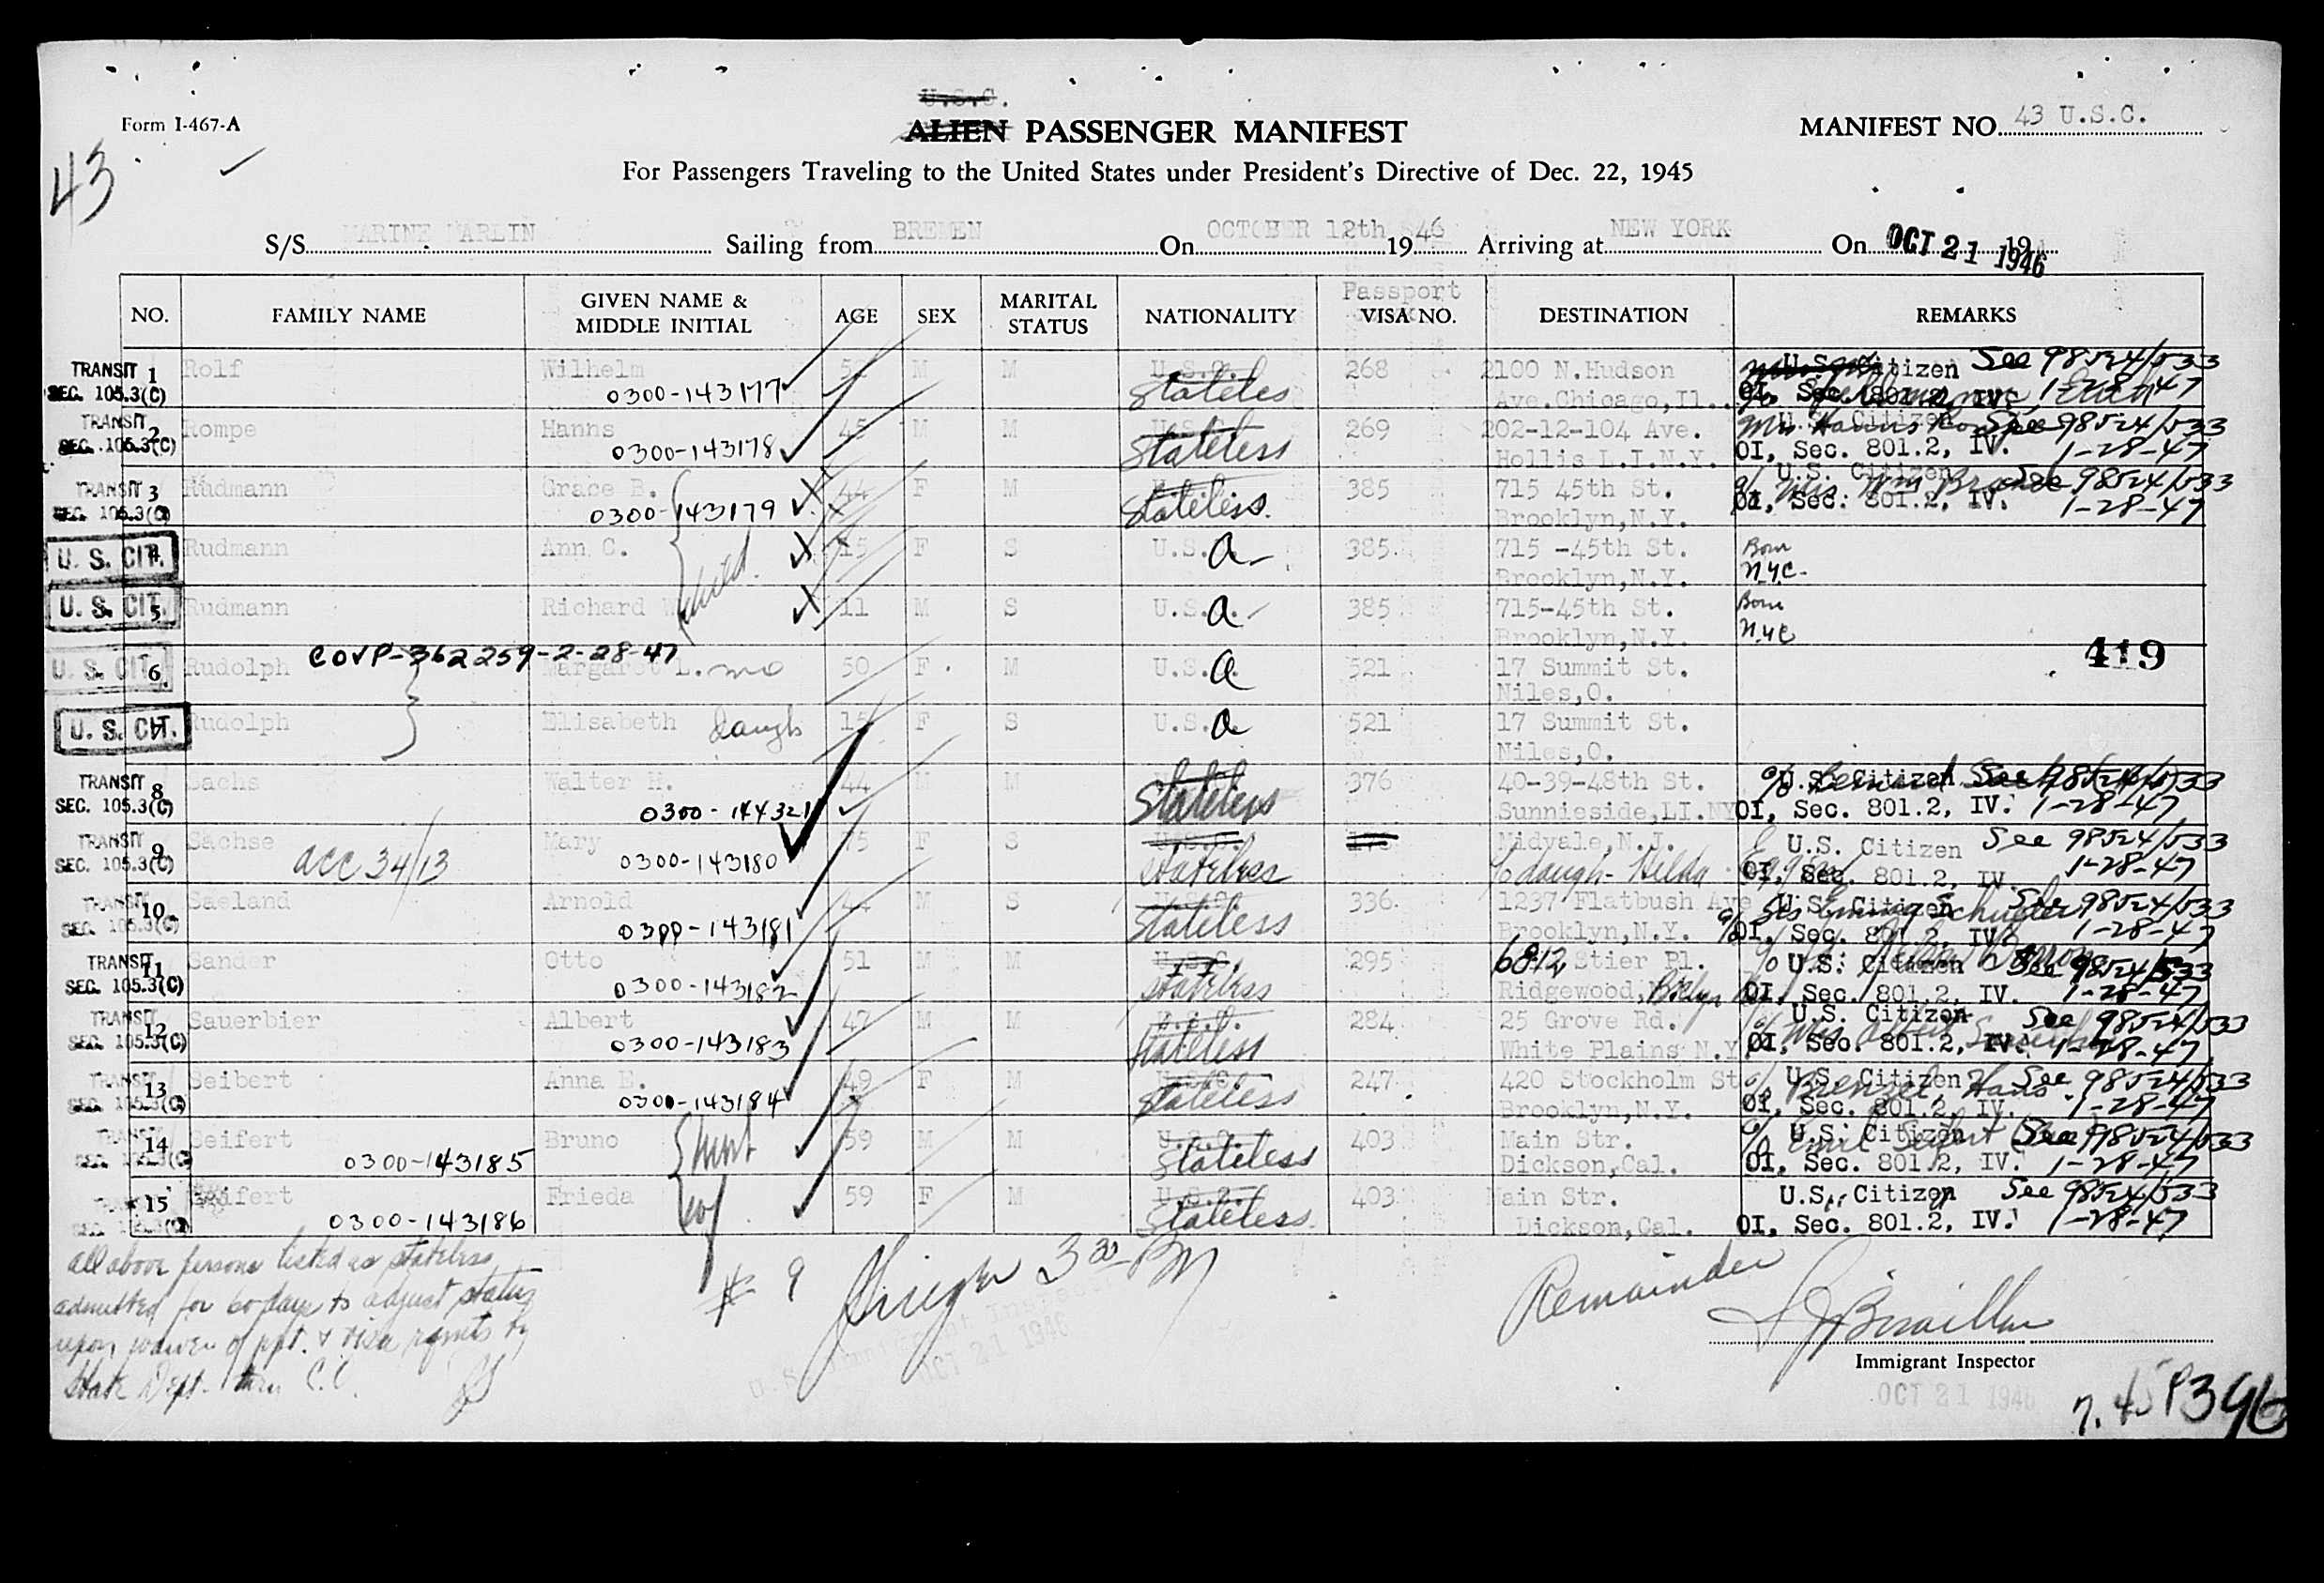 U.S.C.
Form I-467-A
ALIEN PASSENGER MANIFEST
MANIFEST NO. 43 U.S.C.
43
For Passengers Traveling to the United States under President's Directive of Dec. 22, 1945
S/S MARINE MARLIN Sailing from BREMEN On OCTOBER 12th 1946 Arriving at NEW YORK On OCT 21 1946 19
NO. FAMILY NAME GIVEN NAME & MIDDLE INITIAL AGE SEX MARITAL STATUS NATIONALITY Passport VISA NO. DESTINATION REMARKS
TRANSIT 1 Rolf Wilhelm M M U.S.C. 268 2100 N.Hudson U.S. Citizen See 98524/533
SEC. 105.3(C) 0300-143177 Stateles Ave.Chicago,Il. OI, Sec. 801.2, IV. 1-28-47
TRANSIT 2 Rompe Hanns 45 M M 269 202-12-104 Ave. Mrs Hanns Rompe U.S. Citizen See 98524/533
SEC. 105.3(C) 0300-143178 Stateless Hollis L.I.N.Y. OI, Sec. 801.2, IV. 1-28-47
TRANSIT 3 Rudmann Grace B. 44 F M 385 715 45th St. U.S. Citizen See 98524/533
SEC. 105.3(C) 0300-143179 Stateless Brooklyn,N.Y. OI, Sec. 801.2, IV. 1-28-47
U. S. CIT. 4 Rudmann Ann C. 15 F S U.S.A. 385 715 -45th St. Born
Brooklyn,N.Y. N.Y.C.
U. S. CIT. 5 Rudmann Richard 11 M S U.S.A. 385 715-45th St. Born
Brooklyn,N.Y. N.Y.C
COVP-362259-2-28-47
U. S. CIT. 6 Rudolph Margaret L. 50 F M U.S.A 521 17 Summit St. 419
Niles,O.
U. S. CIT. 7 Rudolph Elisabeth daugh 15 F S U.S.A 521 17 Summit St.
Niles,O.
TRANSIT 8 Sachs Walter H. 44 M M 376 40-39-48th St. U.S. Citizen See 98524/533
SEC. 105.3(C) 0300-144321 Stateless Sunnieside,LI.NY OI, Sec. 801.2, IV. 1-28-47
TRANSIT 9 Sachse Mary 75 F S U.S.C. 175 Midvale,N.J. U.S. Citizen See 98524/533
SEC. 105.3(C) acc 34/13 0300-143180 stateless c/o daugh- Hilda OI, Sec. 801.2, IV. 1-28-47
TRANSIT 10 Saeland Arnold 44 M S 336 1237 Flatbush Ave U.S. Citizen See 98524/533
SEC. 105.3(C) 0300-143181 Stateless Brooklyn,N.Y. OI, Sec. 801.2, IV. 1-28-47
TRANSIT 11 Sander Otto 51 M M U.S.C. 295 6812 Stier Pl. U.S. Citizen See 98524/533
SEC. 105.3(C) 0300-143182 stateless Ridgewood, Bklyn OI, Sec. 801.2, IV. 1-28-47
TRANSIT 12 Sauerbier Albert 47 M M U.S.C. 284 25 Grove Rd. U.S. Citizen See 98524/533
SEC. 105.3(C) 0300-143183 stateless White Plains N.Y. OI, Sec. 801.2, IV. 1-28-47
TRANSIT 13 Seibert Anna E. 49 F M U.S.C. 247 420 Stockholm St U.S. Citizen See 98524/533
SEC. 105.3(C) 0300-143184 Stateless Brooklyn,N.Y. OI, Sec. 801.2, IV. 1-28-47
TRANSIT 14 Seifert Bruno 59 M M U.S.C. 403 Main Str. U.S. Citizen See 98524/533
0300-143185 Stateless Dickson,Cal. OI, Sec. 801.2, IV. 1-28-47
15 Seifert Frieda 59 F M U.S.C. 403 Main Str. U.S. Citizen See 98524/533
0300-143186 Stateless Dickson,Cal. OI, Sec. 801.2, IV. 1-28-47
all above persons listed as stateless
admitted for 60 days to adjust status
upon waiver of ppt. & visa rqmts by
State Dept.
# 9
Remainder
Immigrant Inspector
U.S. Immigrant Inspector
OCT 21 1946
OCT 21 1946
7.45P 396